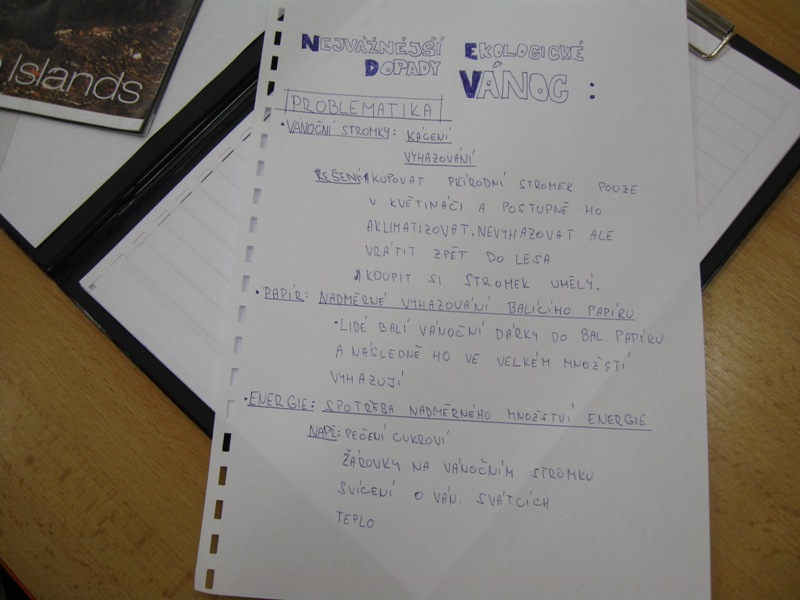 NEJVÁŽNĚJŠÍ EKOLOGICKÉ
DOPADY VÁNOC:
PROBLEMATIKA
• VÁNOČNÍ STROMKY: KÁCENÍ
VYHAZOVÁNÍ
ŘEŠENÍ: KUPOVAT PŘÍRODNÍ STROMEK POUZE
V KVĚTINÁČI A POSTUPNĚ HO
AKLIMATIZOVAT, NEVYHAZOVAT ALE
VRÁTIT ZPĚT DO LESA.
KOUPIT SI STROMEK UMĚLÝ.
• PAPÍR: NADMĚRNÉ VYHAZOVÁNÍ BALÍCÍHO PAPÍRU
• LIDÉ BALÍ VÁNOČNÍ DÁRKY DO BAL. PAPÍRU
A NÁSLEDNĚ HO VE VELKÉM MNOŽSTÍ
VYHAZUJÍ
• ENERGIE: SPOTŘEBA NADMĚRNÉHO MNOŽSTVÍ ENERGIE
NAPŘ: PEČENÍ CUKROVÍ
ŽÁROVKY NA VÁNOČNÍM STROMKU
SVÍCENÍ O VÁN. SVÁTCÍCH
TEPLO
Islands